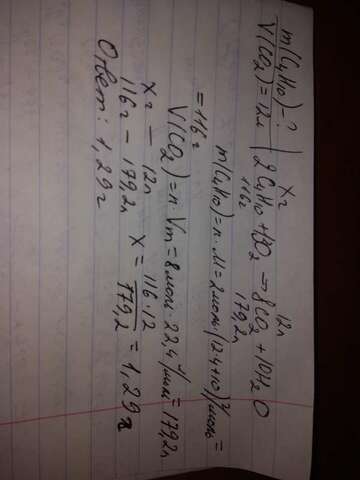 m(C4H10)-?
V(CO2)=12л
xг 12л
2C4H10+13O2→8CO2+10H2O
116г 179,2л
m(C4H10)=n·M=2моль·(12·4+10)г/моль=
=116г
V(CO2)=n·Vm=8моль·22,4л/моль=179,2л
xг - 12л
116г - 179,2л x=116·12/179,2=1,29г
Ответ: 1,29г